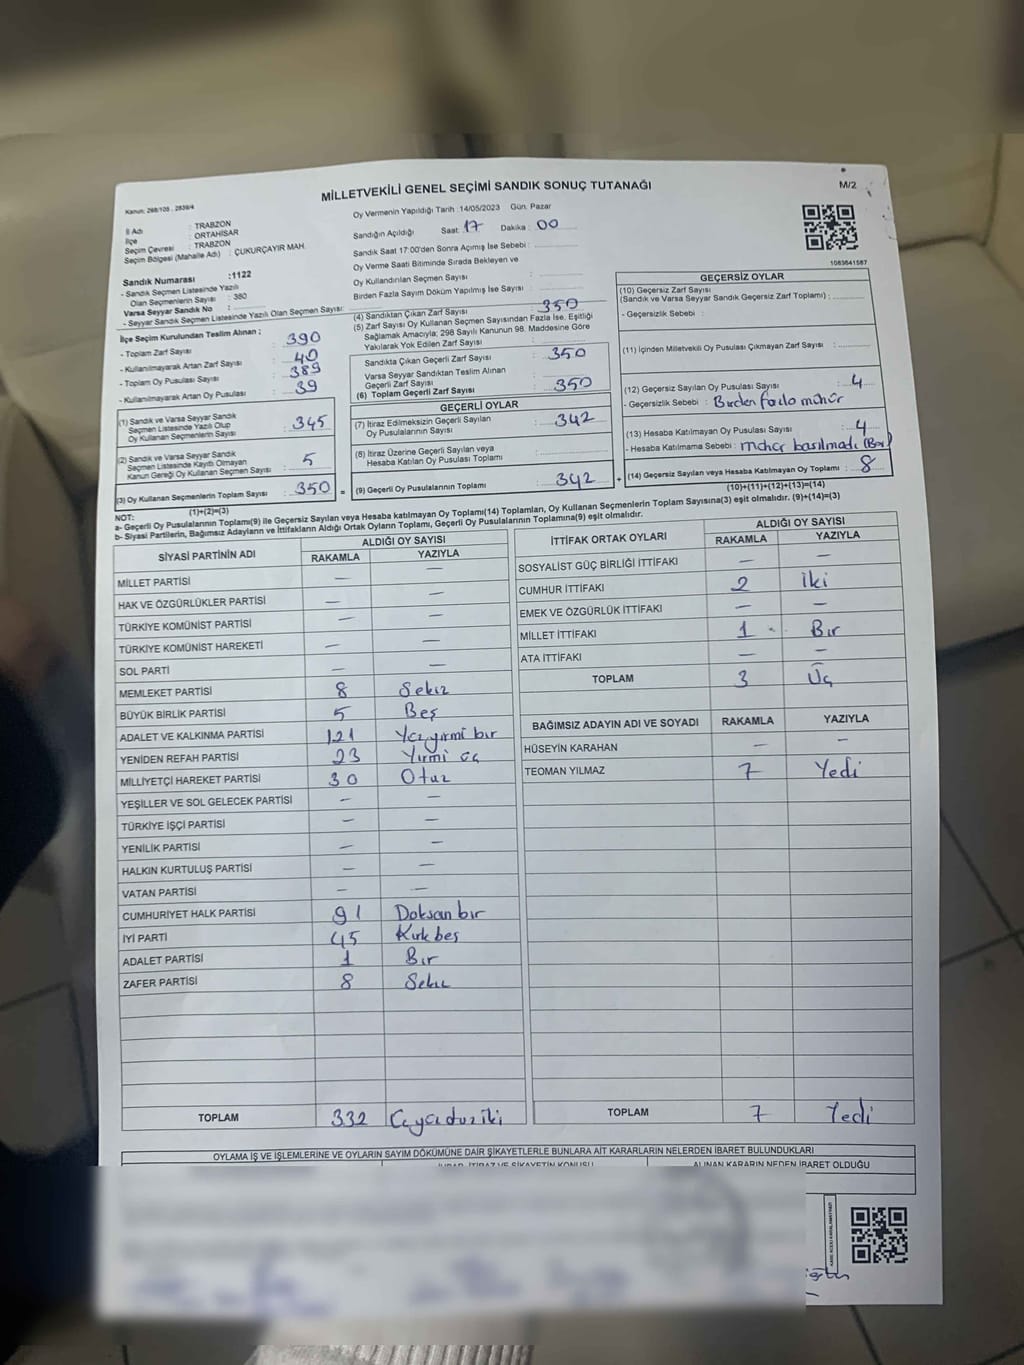 MİLLETVEKİLİ GENEL SEÇİMİ SANDIK SONUÇ TUTANAĞI
M/2
Kanun: 298/105 . 2839/4
Oy Vermenin Yapıldığı Tarih :14/05/2023 Gün. Pazar
İl Adı : TRABZON
İlçe : ORTAHİSAR
Seçim Çevresi : TRABZON
Seçim Bölgesi (Mahalle Adı) : ÇUKURÇAYIR MAH.
Sandığın Açıldığı Saat: 17 Dakika : 00
Sandık Saat 17:00'den Sonra Açımış İse Sebebi :
Oy Verme Saati Bitiminde Sırada Bekleyen ve
Oy Kullandırılan Seçmen Sayısı :
Birden Fazla Sayım Döküm Yapılmış İse Sayısı :
1083641587
Sandık Numarası :1122
- Sandık Seçmen Listesinde Yazılı
Olan Seçmenlerin Sayısı : 380
Varsa Seyyar Sandık No :
- Seyyar Sandık Seçmen Listesinde Yazılı Olan Seçmen Sayısı:
İlçe Seçim Kurulundan Teslim Alınan ;
- Toplam Zarf Sayısı : 390
- Kullanılmayarak Artan Zarf Sayısı : 40
- Toplam Oy Pusulası Sayısı : 389
- Kullanılmayarak Artan Oy Pusulası : 39
(1) Sandık ve Varsa Seyyar Sandık
Seçmen Listesinde Yazılı Olup
Oy Kullanan Seçmenlerin Sayısı : 345
(2) Sandık ve Varsa Seyyar Sandık
Seçmen Listesinde Kayıtlı Olmayan
Kanun Gereği Oy Kullanan Seçmen Sayısı : 5
(3) Oy Kullanan Seçmenlerin Toplam Sayısı : 350 =
(1)+(2)=(3)
(4) Sandıktan Çıkan Zarf Sayısı : 350
(5) Zarf Sayısı Oy Kullanan Seçmen Sayısından Fazla İse, Eşitliği
Sağlamak Amacıyla; 298 Sayılı Kanunun 98. Maddesine Göre
Yakılarak Yok Edilen Zarf Sayısı :
Sandıkta Çıkan Geçerli Zarf Sayısı : 350
Varsa Seyyar Sandıktan Teslim Alınan
Geçerli Zarf Sayısı :
(6) Toplam Geçerli Zarf Sayısı : 350
GEÇERLİ OYLAR
(7) İtiraz Edilmeksizin Geçerli Sayılan
Oy Pusulalarının Sayısı : 342
(8) İtiraz Üzerine Geçerli Sayılan veya
Hesaba Katılan Oy Pusulası Toplamı :
(9) Geçerli Oy Pusulalarının Toplamı : 342 +
GEÇERSİZ OYLAR
(10) Geçersiz Zarf Sayısı
(Sandık ve Varsa Seyyar Sandık Geçersiz Zarf Toplamı) :
- Geçersizlik Sebebi :
(11) İçinden Milletvekili Oy Pusulası Çıkmayan Zarf Sayısı :
(12) Geçersiz Sayılan Oy Pusulası Sayısı : 4
- Geçersizlik Sebebi : Birden fazla mühür
(13) Hesaba Katılmayan Oy Pusulası Sayısı : 4
- Hesaba Katılmama Sebebi : mühür basılmadı
(14) Geçersiz Sayılan veya Hesaba Katılmayan Oy Toplamı : 8
(10)+(11)+(12)+(13)=(14)
NOT:
a- Geçerli Oy Pusulalarının Toplamı(9) ile Geçersiz Sayılan veya Hesaba katılmayan Oy Toplamı(14) Toplamları, Oy Kullanan Seçmenlerin Toplam Sayısına(3) eşit olmalıdır. (9)+(14)=(3)
b- Siyasi Partilerin, Bağımsız Adayların ve İttifakların Aldığı Ortak Oyların Toplamı, Geçerli Oy Pusulalarının Toplamına(9) eşit olmalıdır.
SİYASİ PARTİNİN ADI ALDIĞI OY SAYISI
RAKAMLA YAZIYLA
MİLLET PARTİSİ — —
HAK VE ÖZGÜRLÜKLER PARTİSİ — —
TÜRKİYE KOMÜNİST PARTİSİ — —
TÜRKİYE KOMÜNİST HAREKETİ — —
SOL PARTİ — —
MEMLEKET PARTİSİ 8 Sekiz
BÜYÜK BİRLİK PARTİSİ 5 Beş
ADALET VE KALKINMA PARTİSİ 121 Yüzyirmi bir
YENİDEN REFAH PARTİSİ 23 Yirmi üç
MİLLİYETÇİ HAREKET PARTİSİ 30 Otuz
YEŞİLLER VE SOL GELECEK PARTİSİ — —
TÜRKİYE İŞÇİ PARTİSİ — —
YENİLİK PARTİSİ — —
HALKIN KURTULUŞ PARTİSİ — —
VATAN PARTİSİ — —
CUMHURİYET HALK PARTİSİ 91 Doksan bir
İYİ PARTİ 45 Kırk beş
ADALET PARTİSİ 1 Bir
ZAFER PARTİSİ 8 Sekiz
TOPLAM 332 Üçyüz otuz iki
İTTİFAK ORTAK OYLARI ALDIĞI OY SAYISI
RAKAMLA YAZIYLA
SOSYALİST GÜÇ BİRLİĞİ İTTİFAKI — —
CUMHUR İTTİFAKI 2 İki
EMEK VE ÖZGÜRLÜK İTTİFAKI — —
MİLLET İTTİFAKI 1 Bir
ATA İTTİFAKI — —
TOPLAM 3 Üç
BAĞIMSIZ ADAYIN ADI VE SOYADI RAKAMLA YAZIYLA
HÜSEYİN KARAHAN — —
TEOMAN YILMAZ 7 Yedi
TOPLAM 7 Yedi
OYLAMA İŞ VE İŞLEMLERİNE VE OYLARIN SAYIM DÖKÜMÜNE DAİR ŞİKAYETLERLE BUNLARA AİT KARARLARIN NELERDEN İBARET BULUNDUKLARI
İTİRAZ VE ŞİKAYETİN KONUSU ALINAN KARARIN NEDEN İBARET OLDUĞU